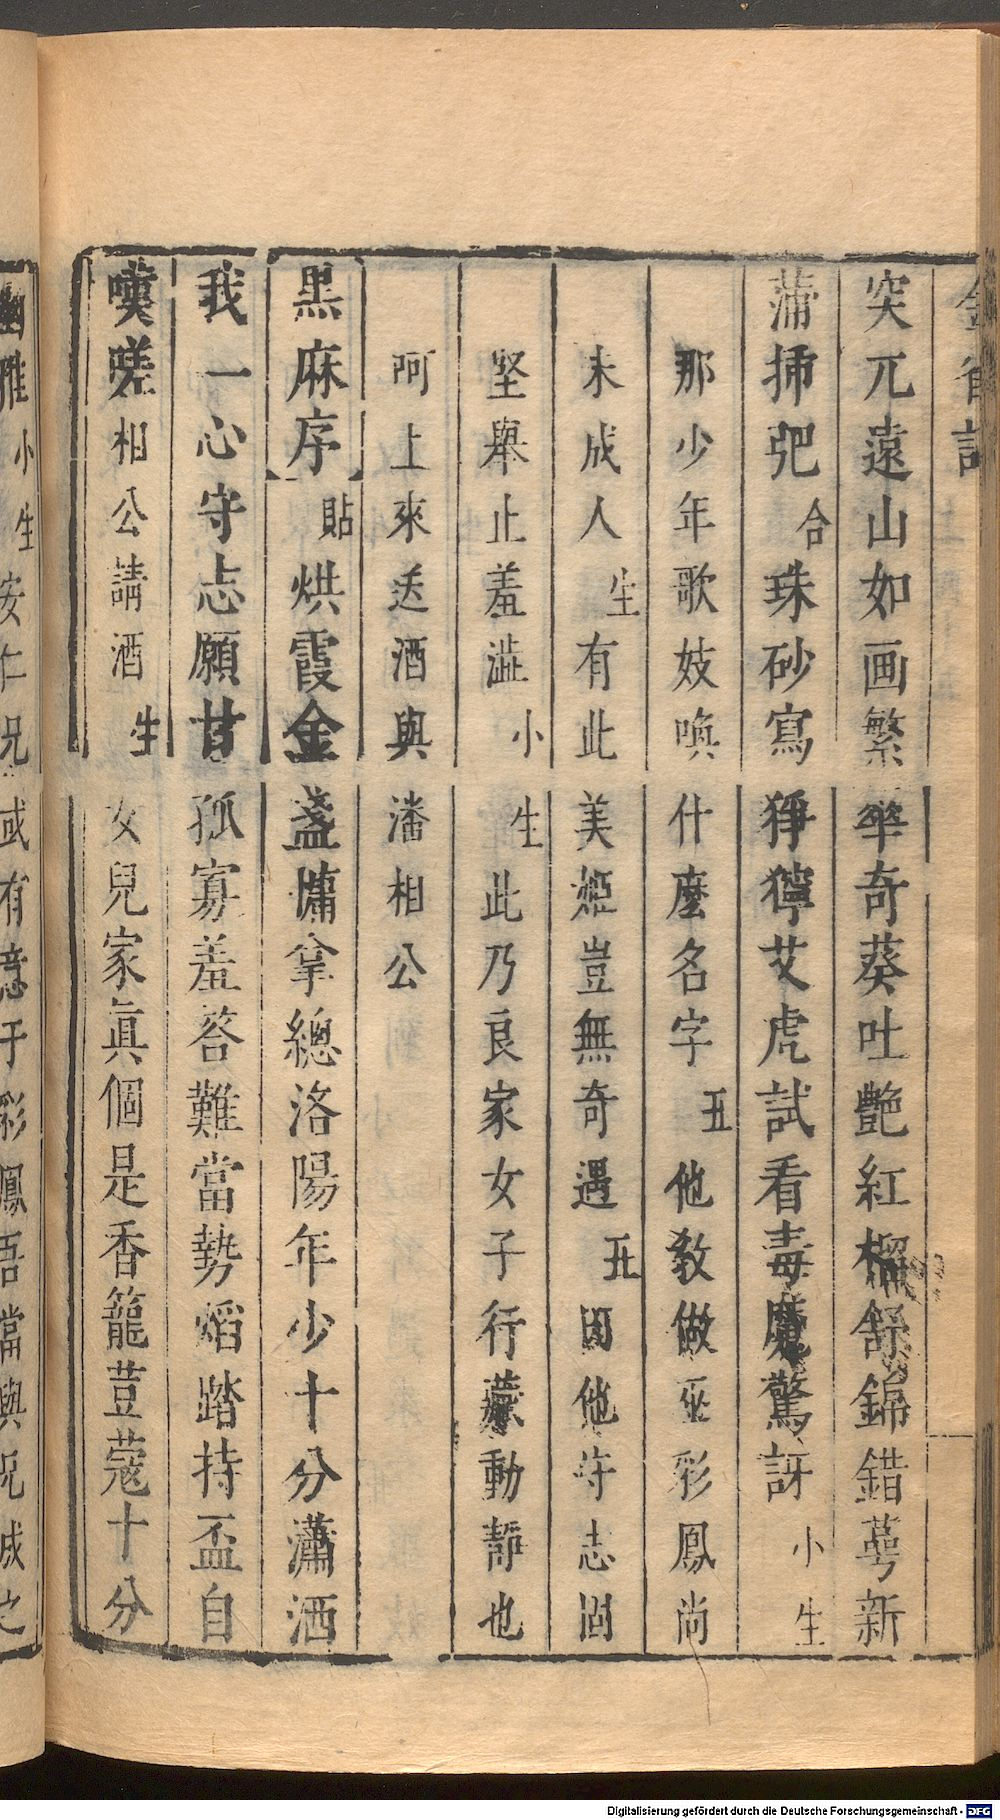 突兀遠山如画繁華奇葵吐艷紅榴舒錦錯蕚新
蒲挿𫑘合珠砂寫猙獰艾虎試看毒魔驚訝小生
那少年歌妓喚什麼名字丑他敎做巫彩鳳尚
未成人生有此美姬豈無奇遇丑因他守志固
堅舉止羞澁小生此乃良家女子行藏動靜也
阿上來送酒與潘相公
黑麻序貼烘霞金盞慵拿總洛陽年少十分瀟洒
我一心守志願甘孤寡羞答難當勢熖踏持盃自
嘆嗟相公請酒生女兒家眞個是香籠荳蔻十分
雅小生安仁兄或有意于彩鳳吾當與兄成之
Digitalisierung gefördert durch die Deutsche Forschungsgemeinschaft - DFG